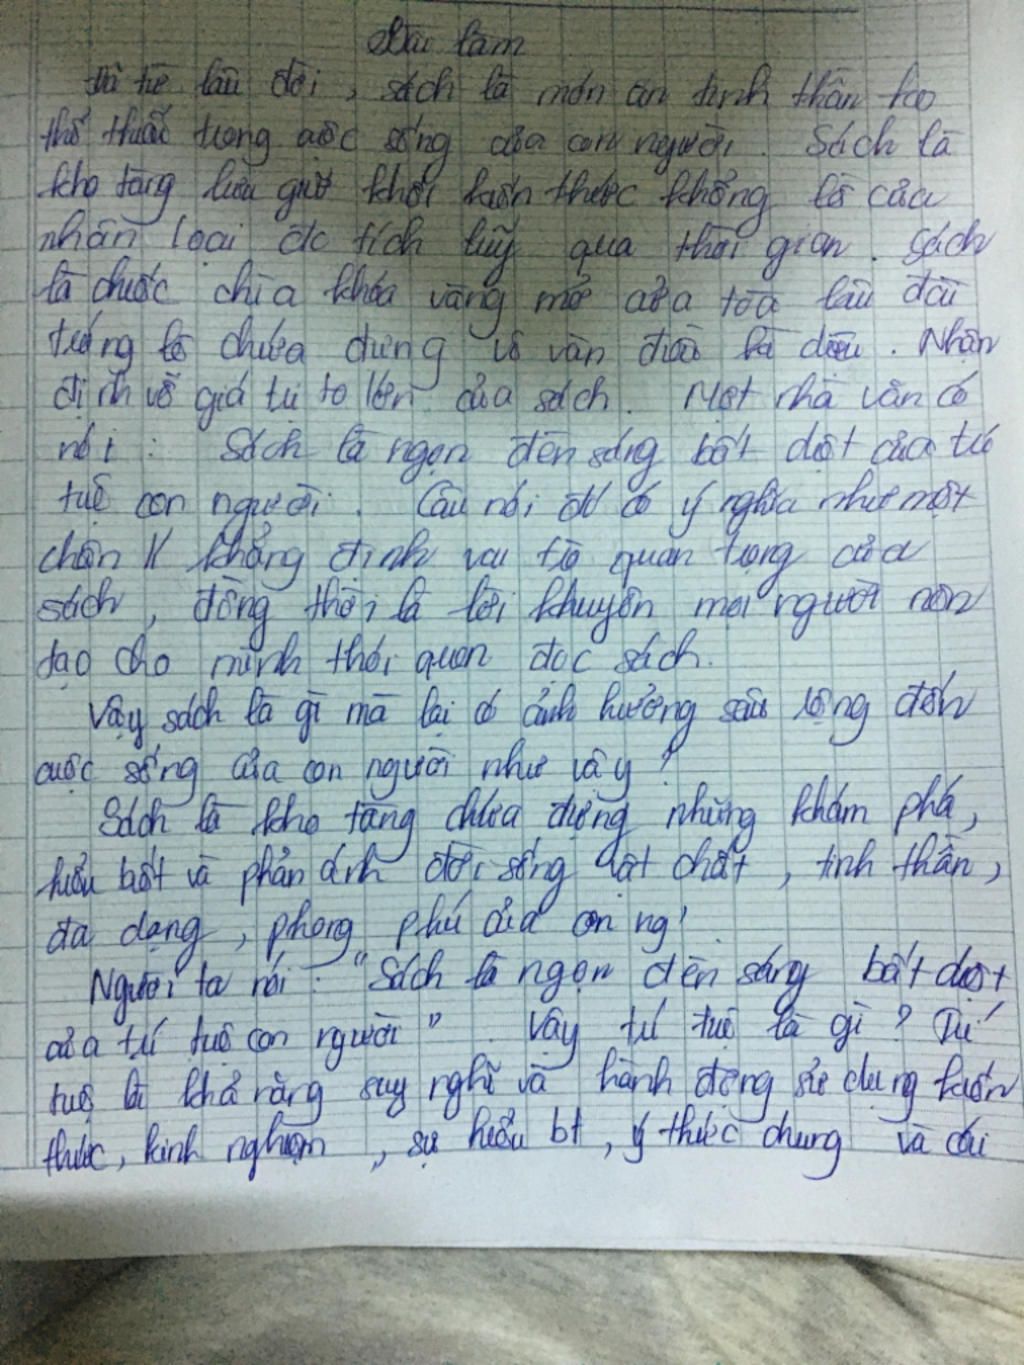 Bài làm
Đã từ lâu đời, sách là món ăn tinh thần ko
thể thiếu trong cuộc sống của con người. Sách là
kho tàng lưu giữ khối kiến thức khổng lồ của
nhân loại đc tích luỹ qua thời gian. Sách
là chiếc chìa khóa vàng mở cửa tòa lâu đài
tráng lệ chứa đựng vô vàn điều kì diệu. Nhận
định về giá trị to lớn của sách. Một nhà văn có
nói: Sách là ngọn đèn sáng bất diệt của trí
tuệ con người. Câu nói đó có ý nghĩa như một
chân lí khẳng định vai trò quan trọng của
sách, đồng thời là lời khuyên mọi người nên
tạo cho mình thói quen đọc sách.
Vậy sách là gì mà lại có ảnh hưởng sâu rộng đến
cuộc sống của con người như vậy?
Sách là kho tàng chứa đựng những khám phá,
hiểu biết và phản ánh đời sống vật chất, tinh thần,
đa dạng, phong phú của con ng'.
Người ta nói: "Sách là ngọn đèn sáng bất diệt
của trí tuệ con người". Vậy trí tuệ là gì? Trí
tuệ là khả năng suy nghĩ và hành động sử dụng kiến
thức, kinh nghiệm, sự hiểu bt, ý thức chung và cái